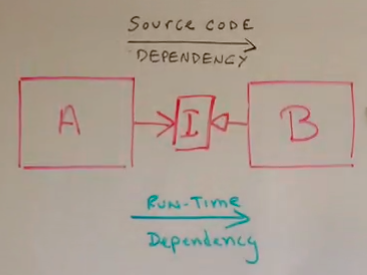 Source code
Dependency
A
I
B
Run-Time
Dependency